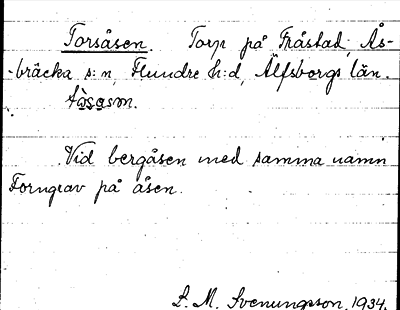 Torsåsen. Torp på Fråstad, Ås-
bräcka s:n, Flundre h:d, Älfsborgs län.
tòsåsən.
Vid bergåsen med samma namn
Forngrav på åsen.
S. M. Svenungsson, 1934.